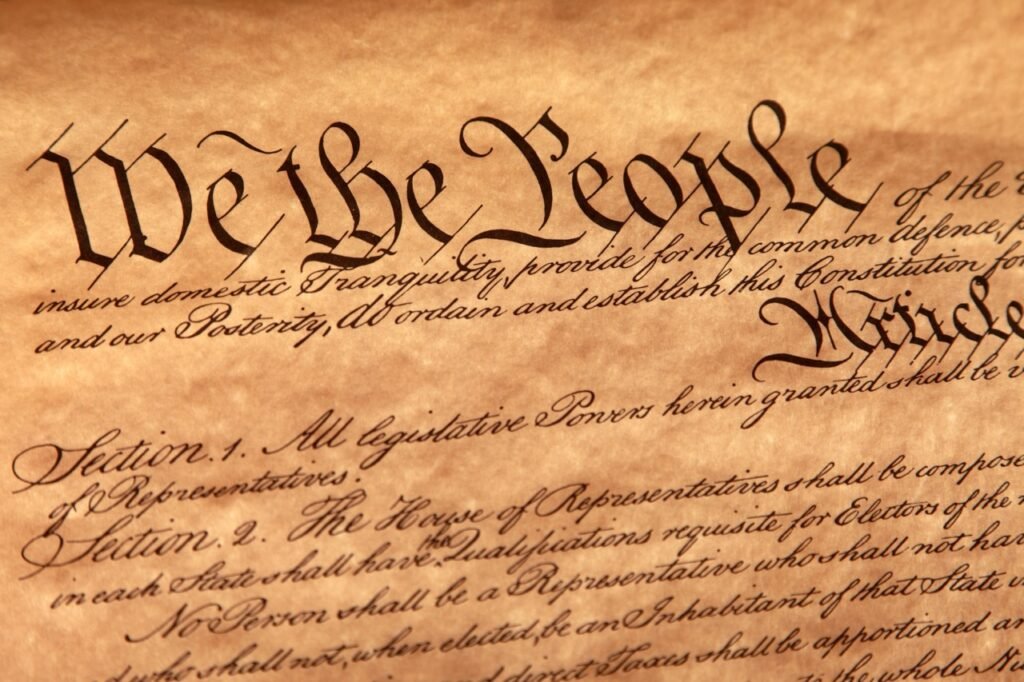 We the People of the
insure domestic Tranquility, provide for the common defence,
and our Posterity, do ordain and establish this Constitution for
Article
Section. 1. All legislative Powers herein granted shall be
of Representatives.
Section. 2. The House of Representatives shall be compose
in each State shall have the Qualifications requisite for Electors of the
No Person shall be a Representative who shall not hav
who shall not, when elected, be an Inhabitant of that State
and direct Taxes shall be apportioned
to the whole Nu